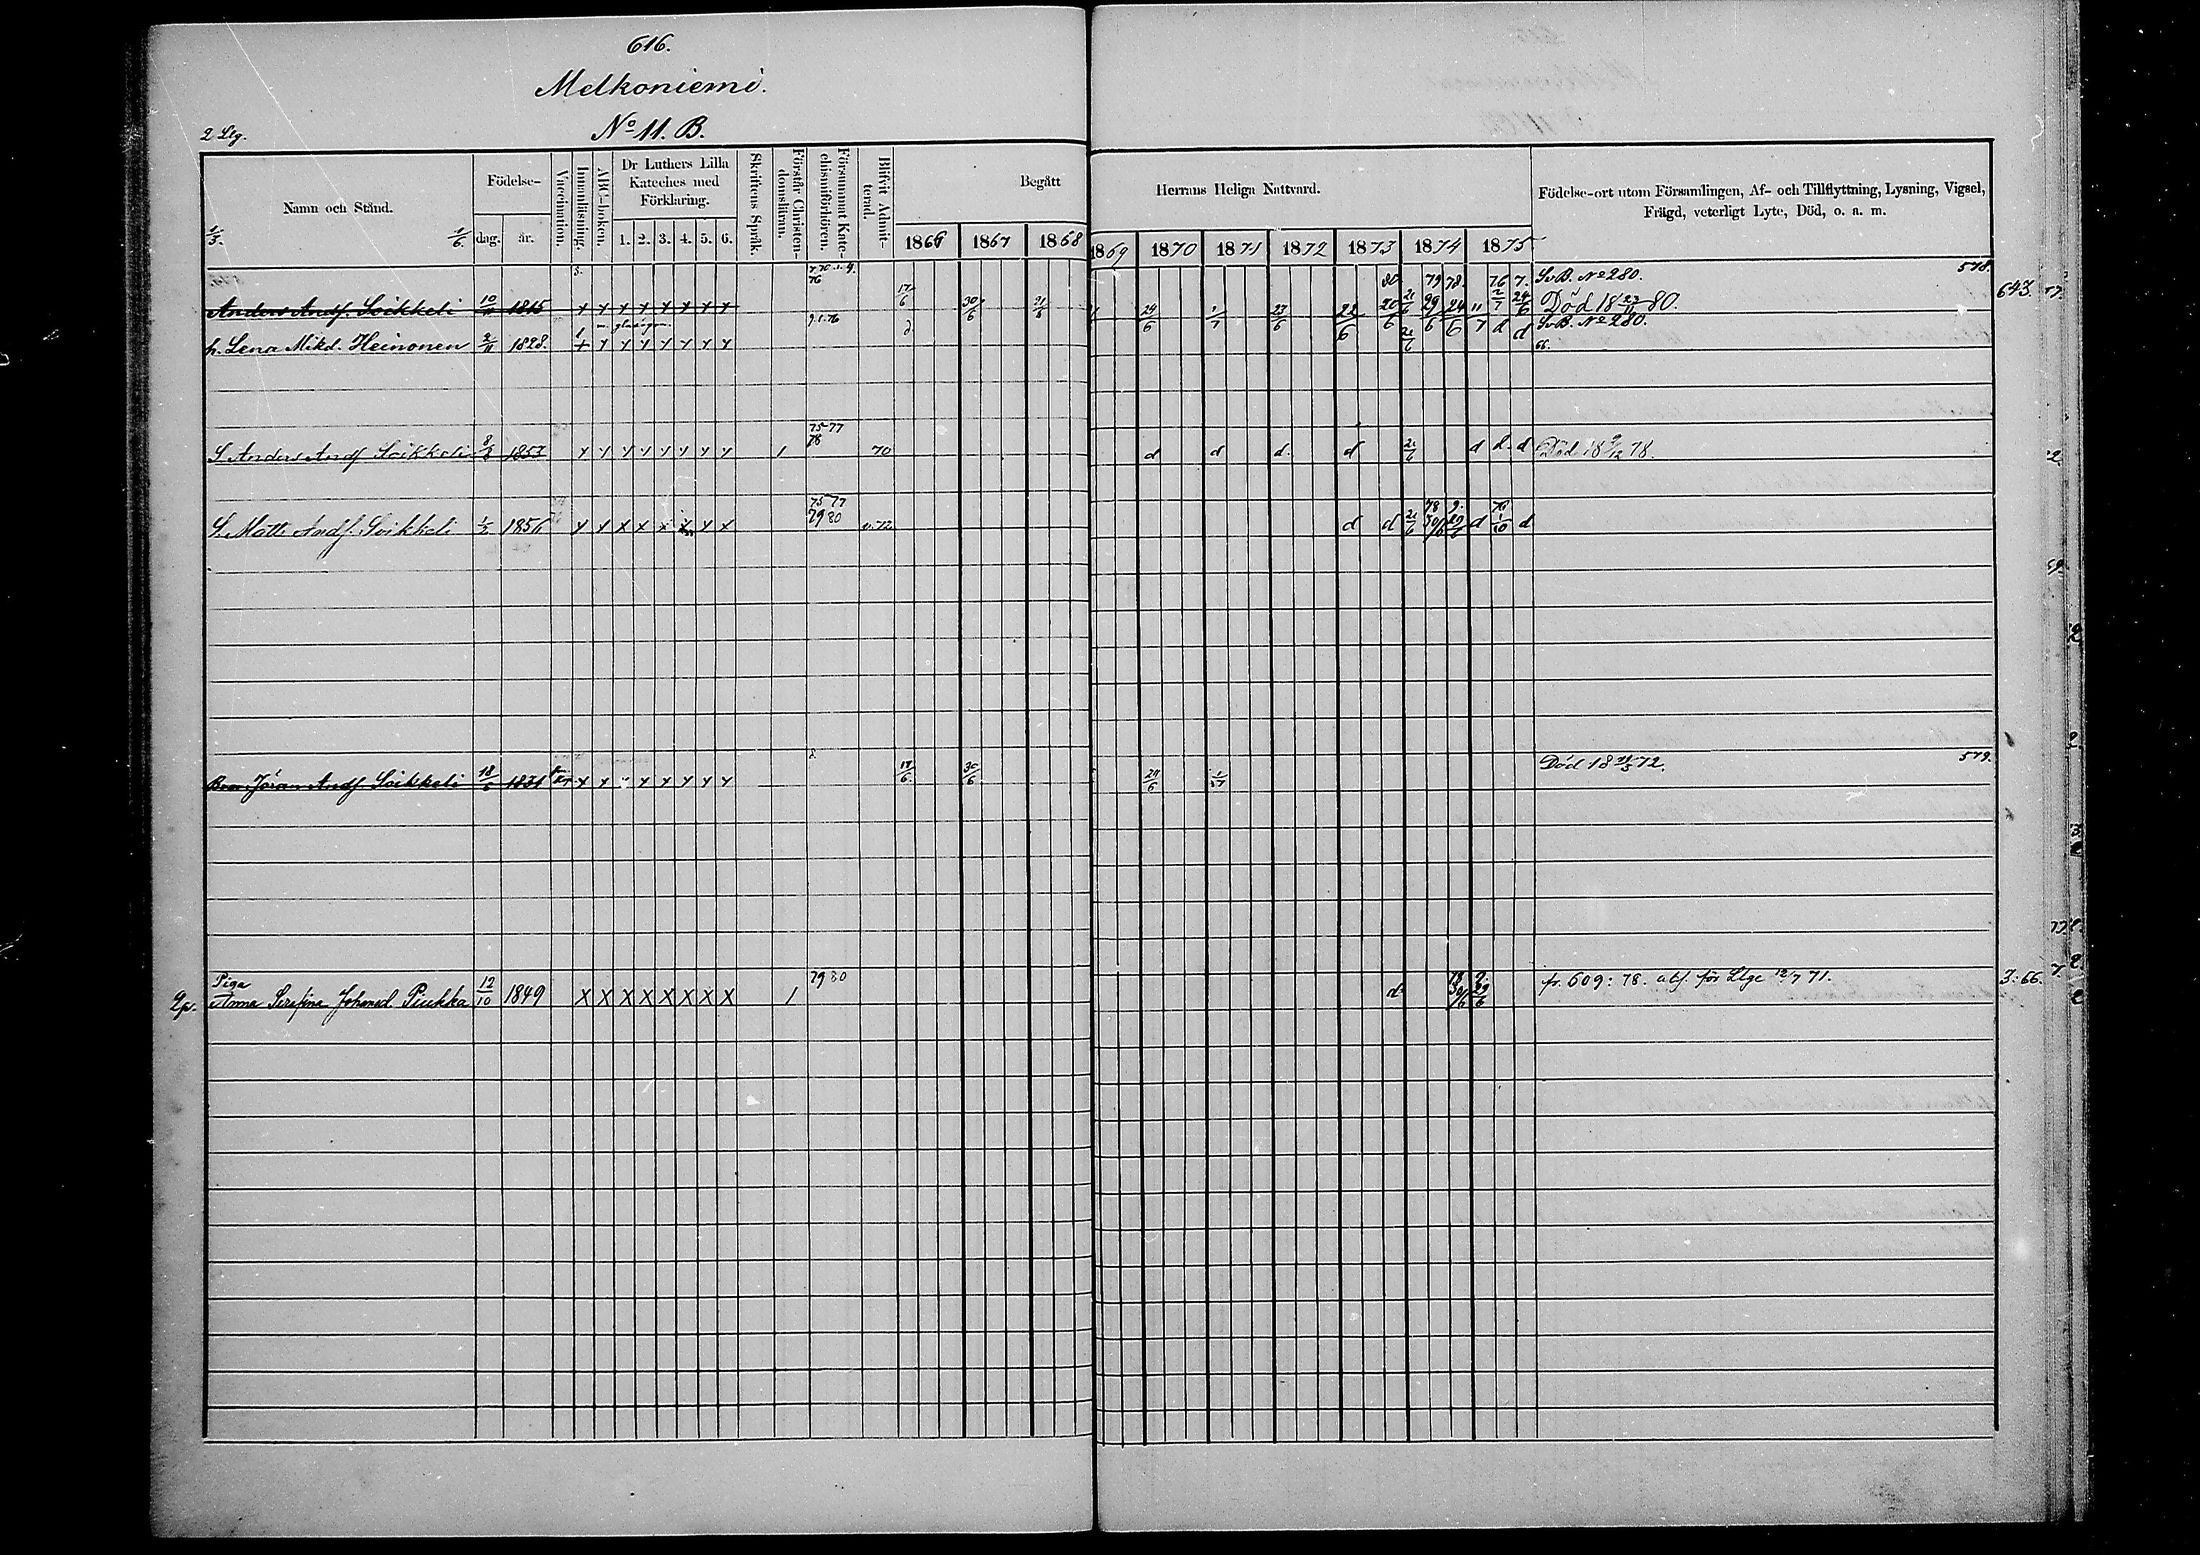 616.
Melkoniemi.
No 11. B.
2 Llg.
Namn och Stånd.
1/3.
1/6.
Födelse-
dag.
år.
Vaccination.
Innanläsning.
ABC-boken.
Dr Luthers Lilla
Kateches med
Förklaring.
1. 2. 3. 4. 5. 6.
Skriftens Språk.
Förstår Christen-
domsläran.
Försummat Kate-
chismiförhören.
Blifvit Admit-
terad.
Begått
Herrans Heliga Nattvard.
1866 1867 1868
1869 1870 1871 1872 1873 1874 1875
Födelse-ort utom Församlingen, Af- och Tillflyttning, Lysning, Vigsel,
Frägd, veterligt Lyte, Död, o. a. m.
SvB. No 280. 578.
Anders Andf. Soikkeli 1815 x x x x x x x x 17/6 30/6 21/6 24/6 23/6 22/6 Död 18 80. 643.
SvB. No 280.
h. Lena Mikd. Heinonen 2/11 1828. x x x x x x x x d
66.
75-77
78
S. Anders Andf Soikkeli 1853 x x x x x x x x 1 70 d d d. d 21/6 d d d Död 18 9/12 78.
75-77
79 80
S. Matts Andf. Soikkeli 1856 x x x x x x x x d d 21/6 d 1/10 d
8.
Död 18 72. 579.
Bror Jöran Andf Soikkeli 18/5 1831 x x x x x x x 30/6 24/6 1/7
Piga 79 80
fr. 609: 78. abf. för Llge 12/7 71. 3: 66.
Anna Serafina Johansd. Piukka 12/10 1849 x x x x x x x x 1 d 30/6 29/6